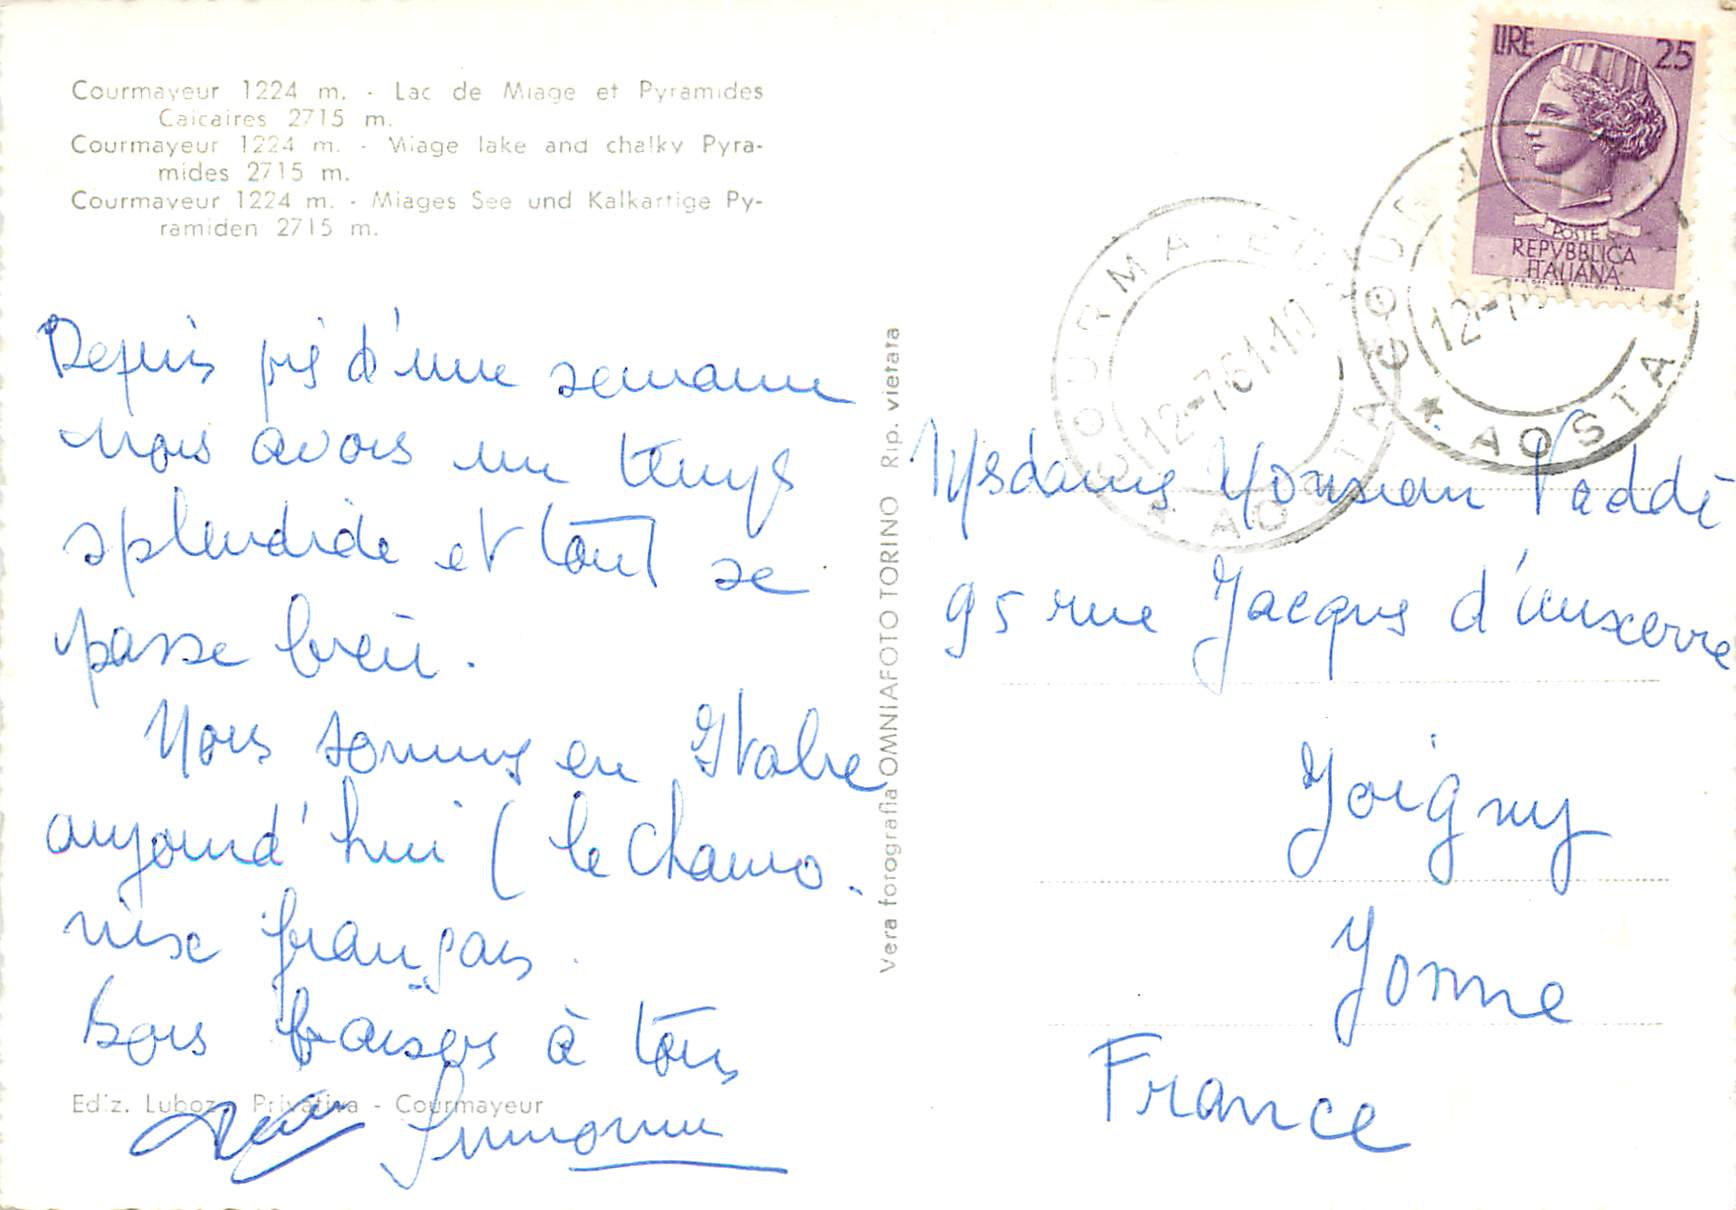 Courmayeur 1224 m. - Lac de Miage et Pyramides
Calcaires 2715 m.
Courmayeur 1224 m. - Miage lake and chalky Pyra-
mides 2715 m.
Courmayeur 1224 m. - Miages See und Kalkartige Py-
ramiden 2715 m.
Depuis près d'une semaine
nous avons un temps
splendide et tout se
passe bien.
Nous sommes en Italie
aujourd'hui (le Chamo-
nix français.
Bons baisers à tous
Simonne
Ediz. Luboz - Privativa - Courmayeur
Vera fotografia OMNIAFOTO TORINO Rip. vietata
LIRE 25
POSTE
REPVBBLICA
ITALIANA
COURMAYEUR
12-7-61·10
AOSTA
COURMAYEUR
12-7-61
* AOSTA
95 rue Jacques d'Auxerre
Joigny
Yonne
France